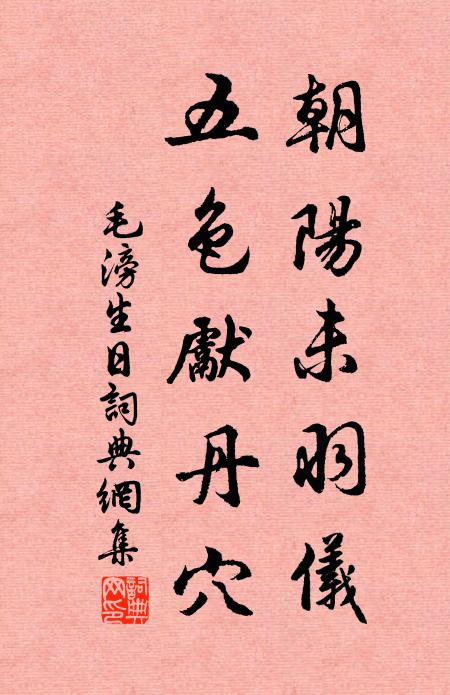 朝陽未羽儀
五色獻丹穴
毛滂生日詞典網集
詞典網印